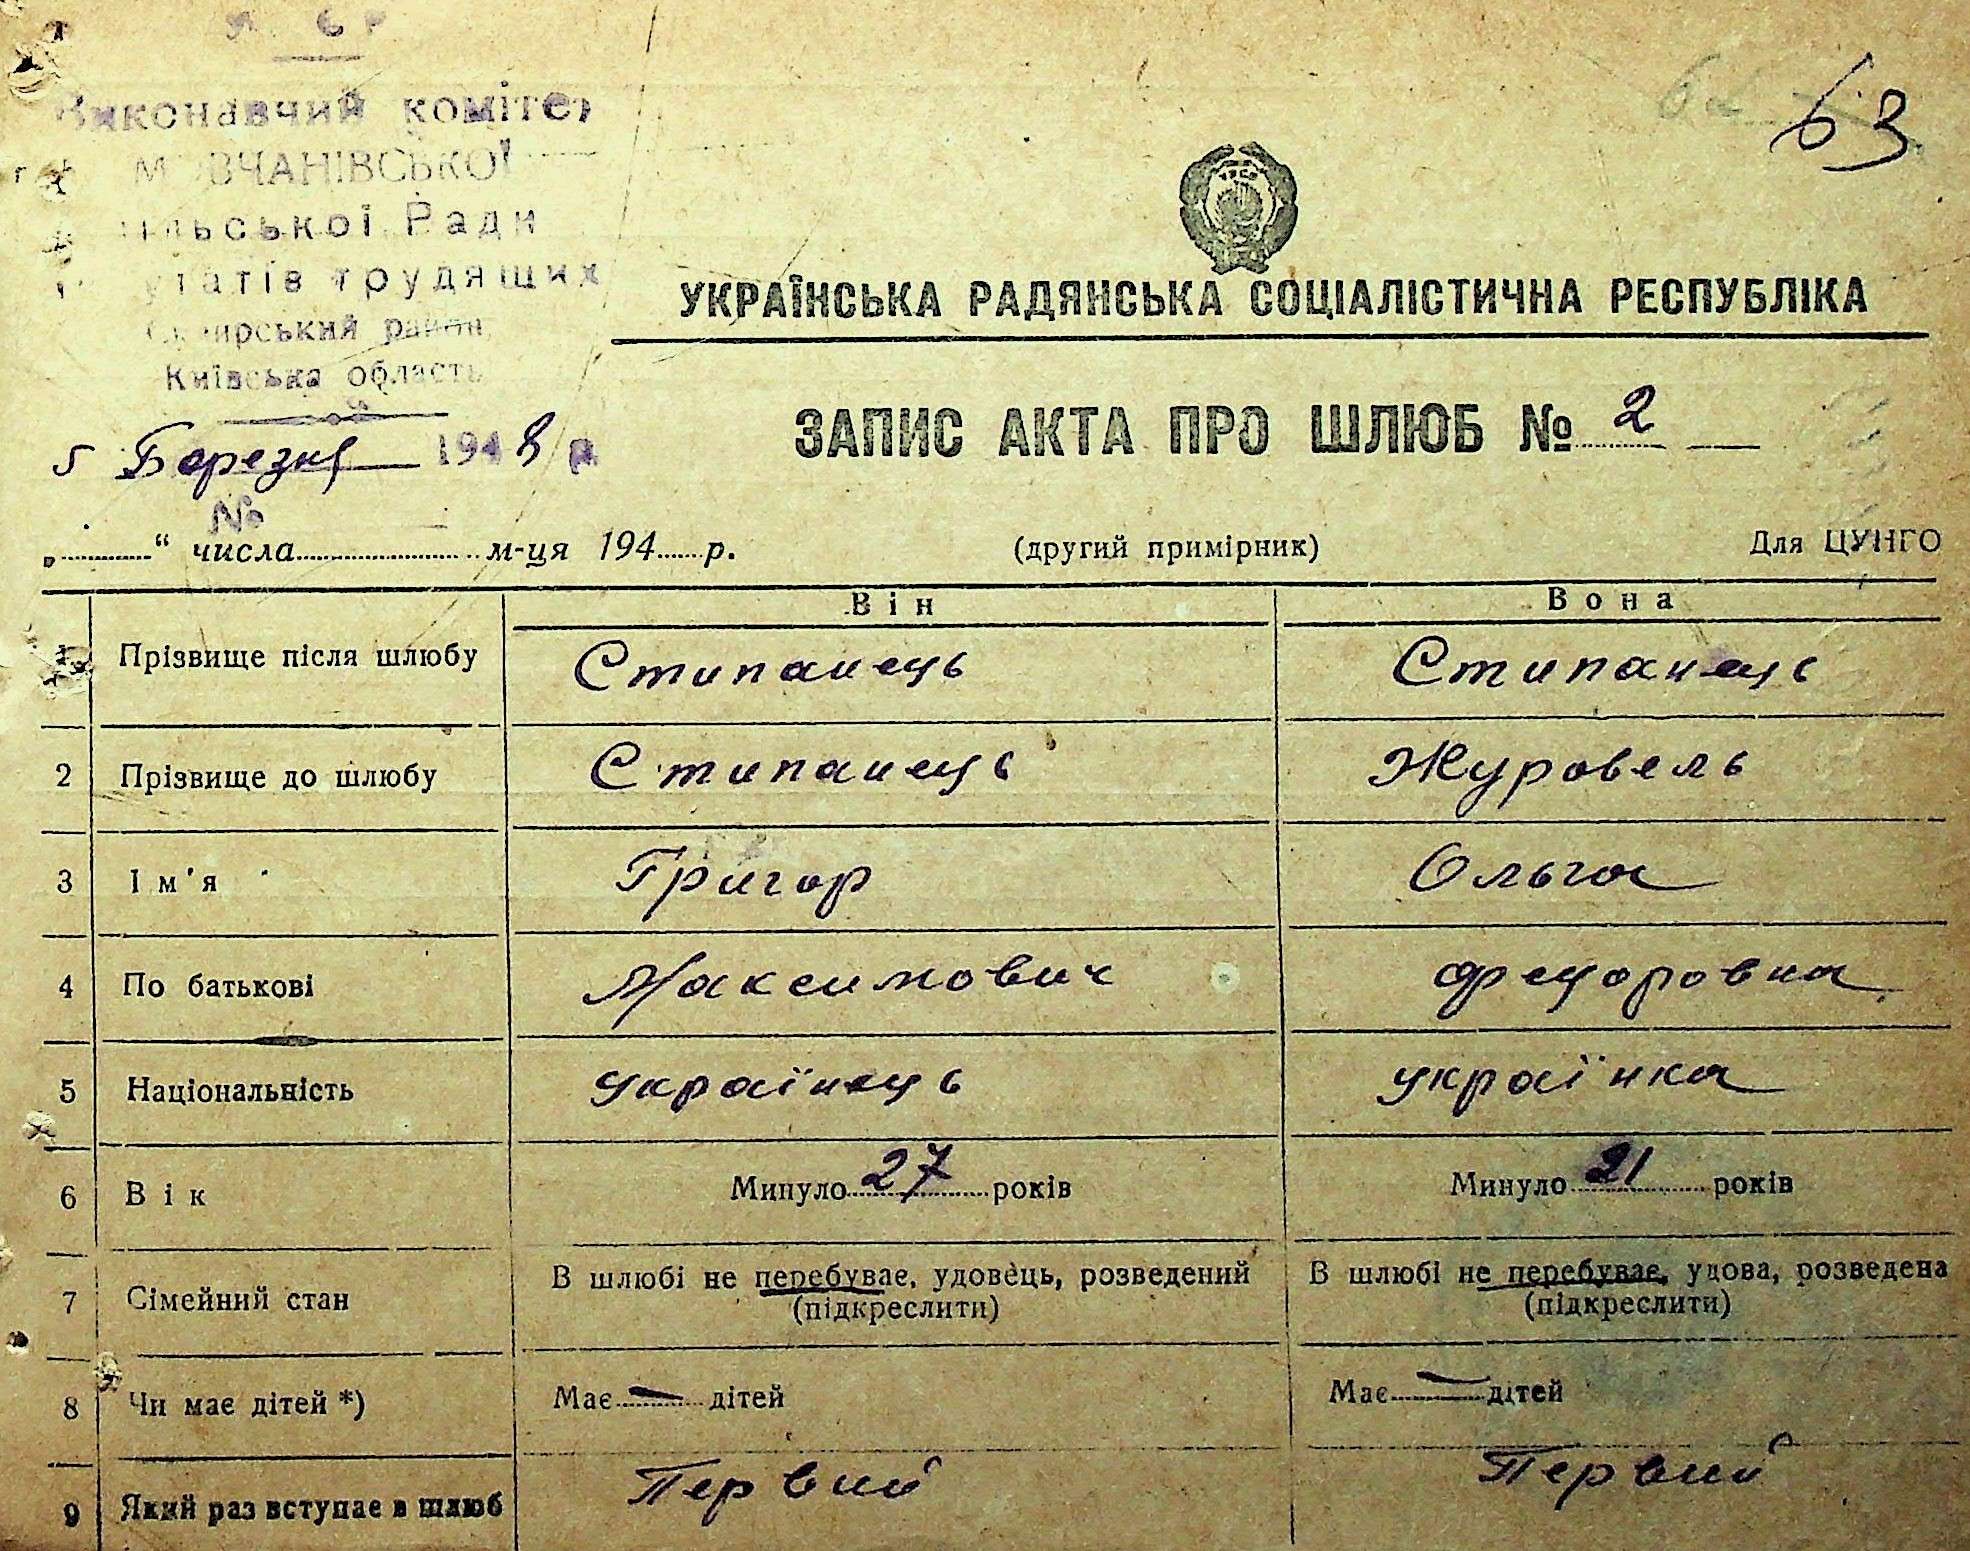 У. С. Р.
Виконавчий комітет
МОВЧАНІВСЬКОЇ
сільської Ради
депутатів трудящих
Сквирський район,
Київська область
5 Березня 1948 р.
№
63
УКРАЇНСЬКА РАДЯНСЬКА СОЦІАЛІСТИЧНА РЕСПУБЛІКА
ЗАПИС АКТА ПРО ШЛЮБ № 2
„ “ числа м-ця 194 р. (другий примірник) Для ЦУНГО
Він Вона
1 Прізвище після шлюбу Стипанець Стипанець
2 Прізвище до шлюбу Стипанець Журовель
3 Ім'я Григор Ольга
4 По батькові Максимович Федоровна
5 Національність українець українка
6 Вік Минуло 27 років Минуло 21 років
7 Сімейний стан В шлюбі не перебуває, удовець, розведений В шлюбі не перебуває, удова, розведена
(підкреслити) (підкреслити)
8 Чи має дітей *) Має — дітей Має — дітей
9 Який раз вступає в шлюб Первий Первий